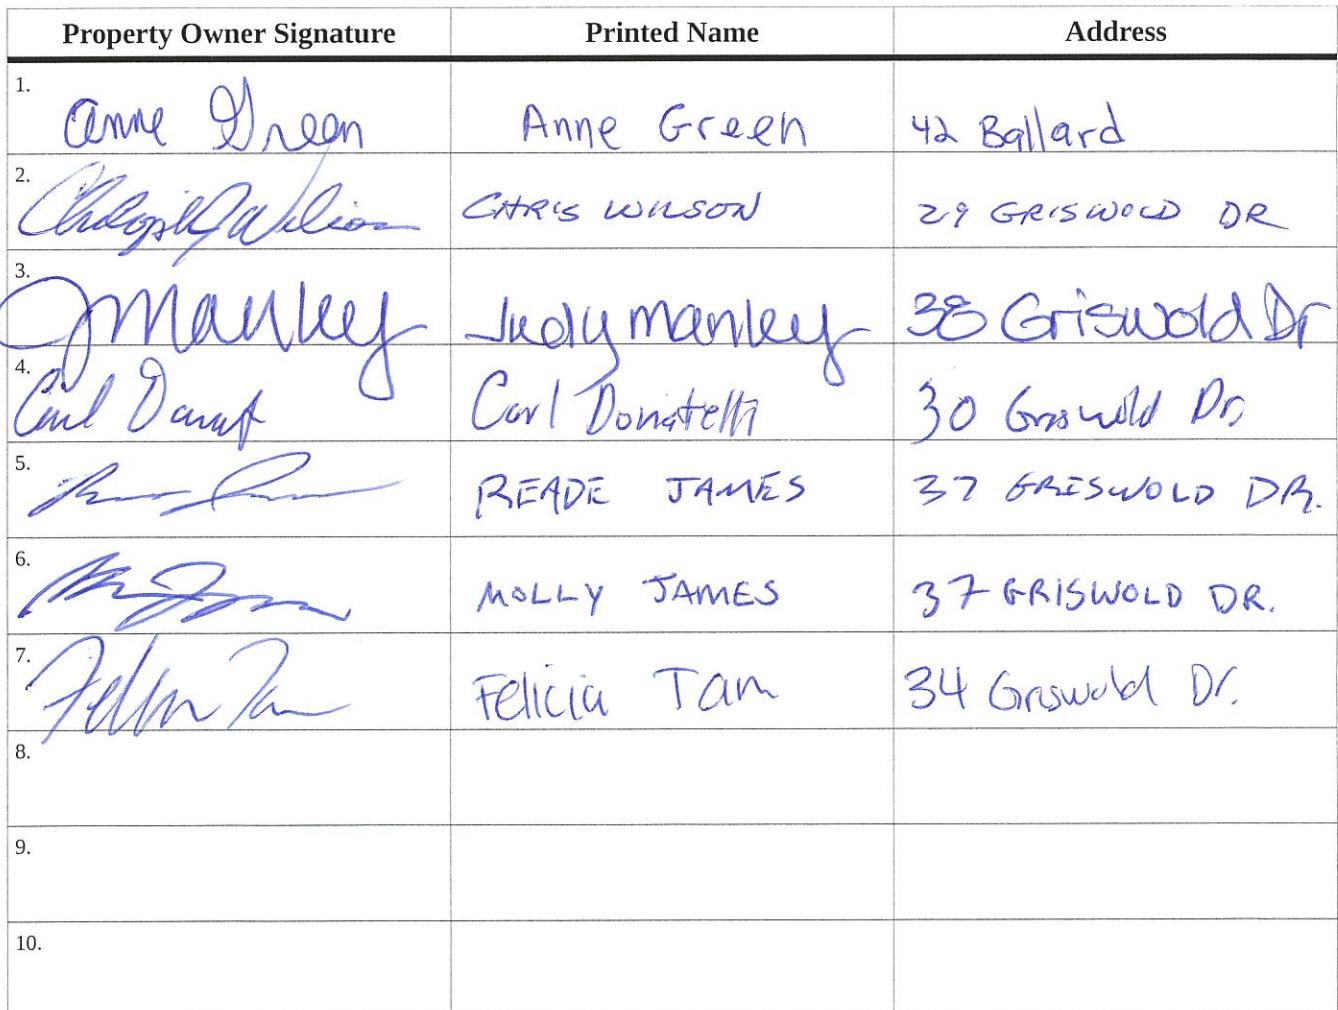 Property Owner Signature Printed Name Address
1. Anne Green Anne Green 42 Ballard
2. CHRIS WILSON 29 GRISWOLD DR
3. JManley Judy Manley 38 Griswold Dr
4. Carl Carl Donatelli 30 Griswold Dr.
5. READE JAMES 37 GRISWOLD DR.
6. MOLLY JAMES 37 GRISWOLD DR.
7. Felicia Tam 34 Griswold Dr.
8.
9.
10.